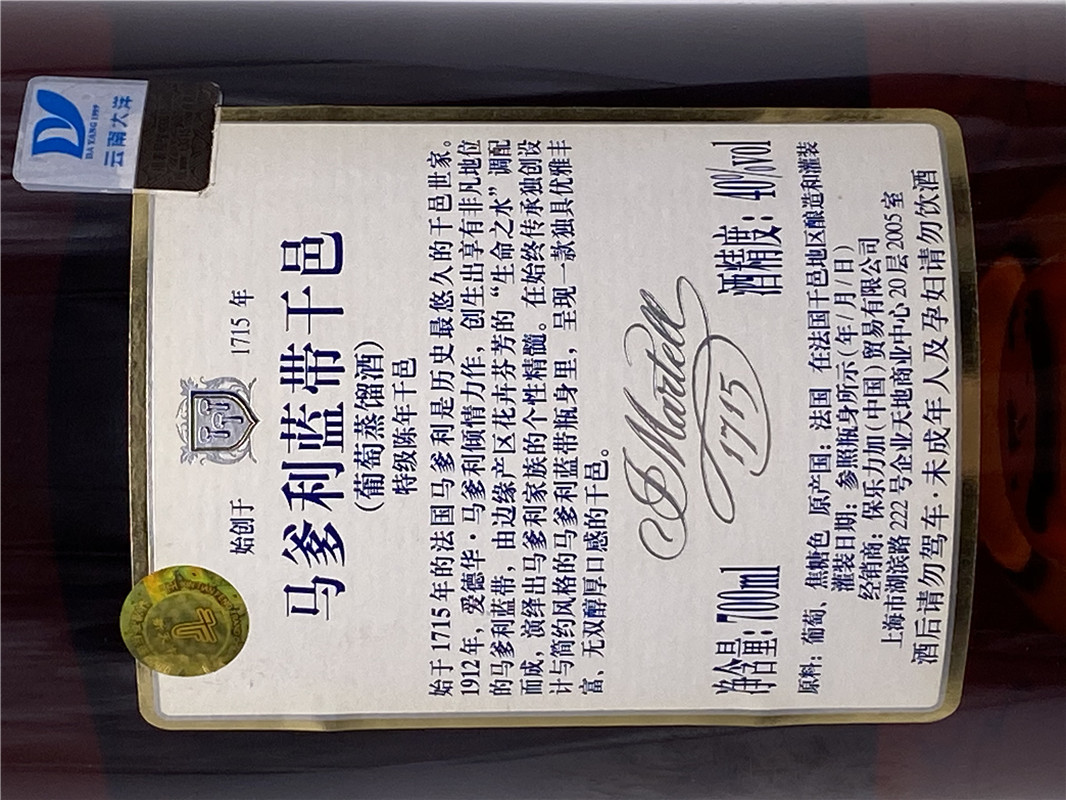 DA YANG 1999
云南大洋
始创于 1715 年
马爹利蓝带干邑
(葡萄蒸馏酒)
特级陈年干邑
始于 1715 年的法国马爹利是历史最悠久的干邑世家。
1912 年，爱德华·马爹利倾情力作，创生出享有非凡地位
的马爹利蓝带，由边缘产区花卉芬芳的“生命之水”调配
而成，演绎出马爹利家族的个性精髓。在始终传承独创设
计与简约风格的马爹利蓝带瓶身里，呈现一款独具优雅丰
富、无双醇厚口感的干邑。
J Martell
1715
净含量:700ml 酒精度：40%vol
原料：葡萄、焦糖色 原产国：法国 在法国干邑地区酿造和灌装
灌装日期：参照瓶身所示(年/月/日)
经销商：保乐力加(中国)贸易有限公司
上海市湖滨路 222 号企业天地商业中心 20 层 2005 室
酒后请勿驾车·未成年人及孕妇请勿饮酒